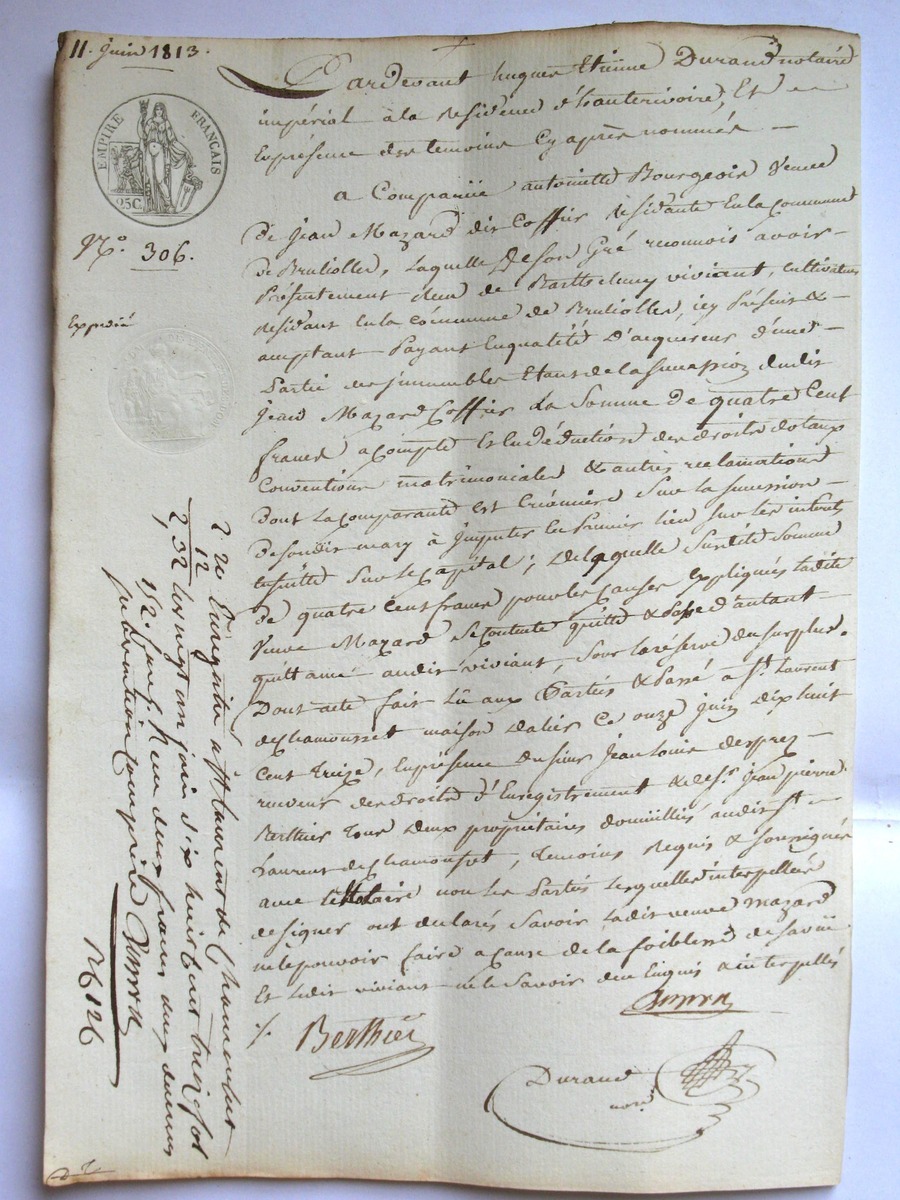 11. Juin 1813.
EMPIRE FRANÇAIS
25C.
N.° 306.
Expedié
Pardevant hugues Etienne Durand notaire
impérial à la Residence d'hauterivoire, Et en
Lapresence des temoins Cy après nommés —
a Comparüe antoinette Bourgeois Veuve
De Jean Mazard dit Coffier residante En la Commune
De Brullolles, Laquelle De son Gré reconnois avoir
Présentement Reçu de Barthelemy viviant, cultivateur
Residant En la Commune de Brullolles, icy Présent &
acceptant Payant En qualité D'acquereur d'une
Partie des immeubles Etant de la Succession dudit
Jean Mazard Coffier La Somme De quatre Cent
francs acompte Et En Déduction des droits dotaux
Conventions matrimoniales & autres reclamations
Dont La Comparante Est Créancière Sur la succession
De Sondit mary à Imputer En Premier lieu sur les interets
Ensuitte Sur le Capital; De laquelle Susdite Somme
De quatre Cent francs pour les Causes Expliquées ladite
Veuve Mazard Se Contente quitte & Passe d'autant
quittance audit viviant, Sous la réserve du surplus.
Dont acte fait Lû aux Parties & Passé à St. Laurent
de Chamousset maison Dalier Ce onze Juin Dix huit
Cent Treize, En présence du sieur Jean Louis desprez
receveur des droits d'Enregistrement & de Sr. Jean pierre
Berthier Tous Deux propriétaires domiciliés audit St
Laurent de Chamousset, Temoins Requis & soussignés
avec le Notaire non les Parties Lesquelles interpellées
de signer ont declarés Savoir ladite veuve Mazard
ne le pouvoir faire a Cause de la foiblesse de sa vüe
Et Ledit viviant ne le Savoir de ce Enquis & interpellés
Berthier
Durand
nore
2. 20 Enregistré à St Laurent de Chamousset
12
2 32 Le vingt un juin dix huit cent treize fol
152 reçu deux francs vingt
subvention comprise
N° 126